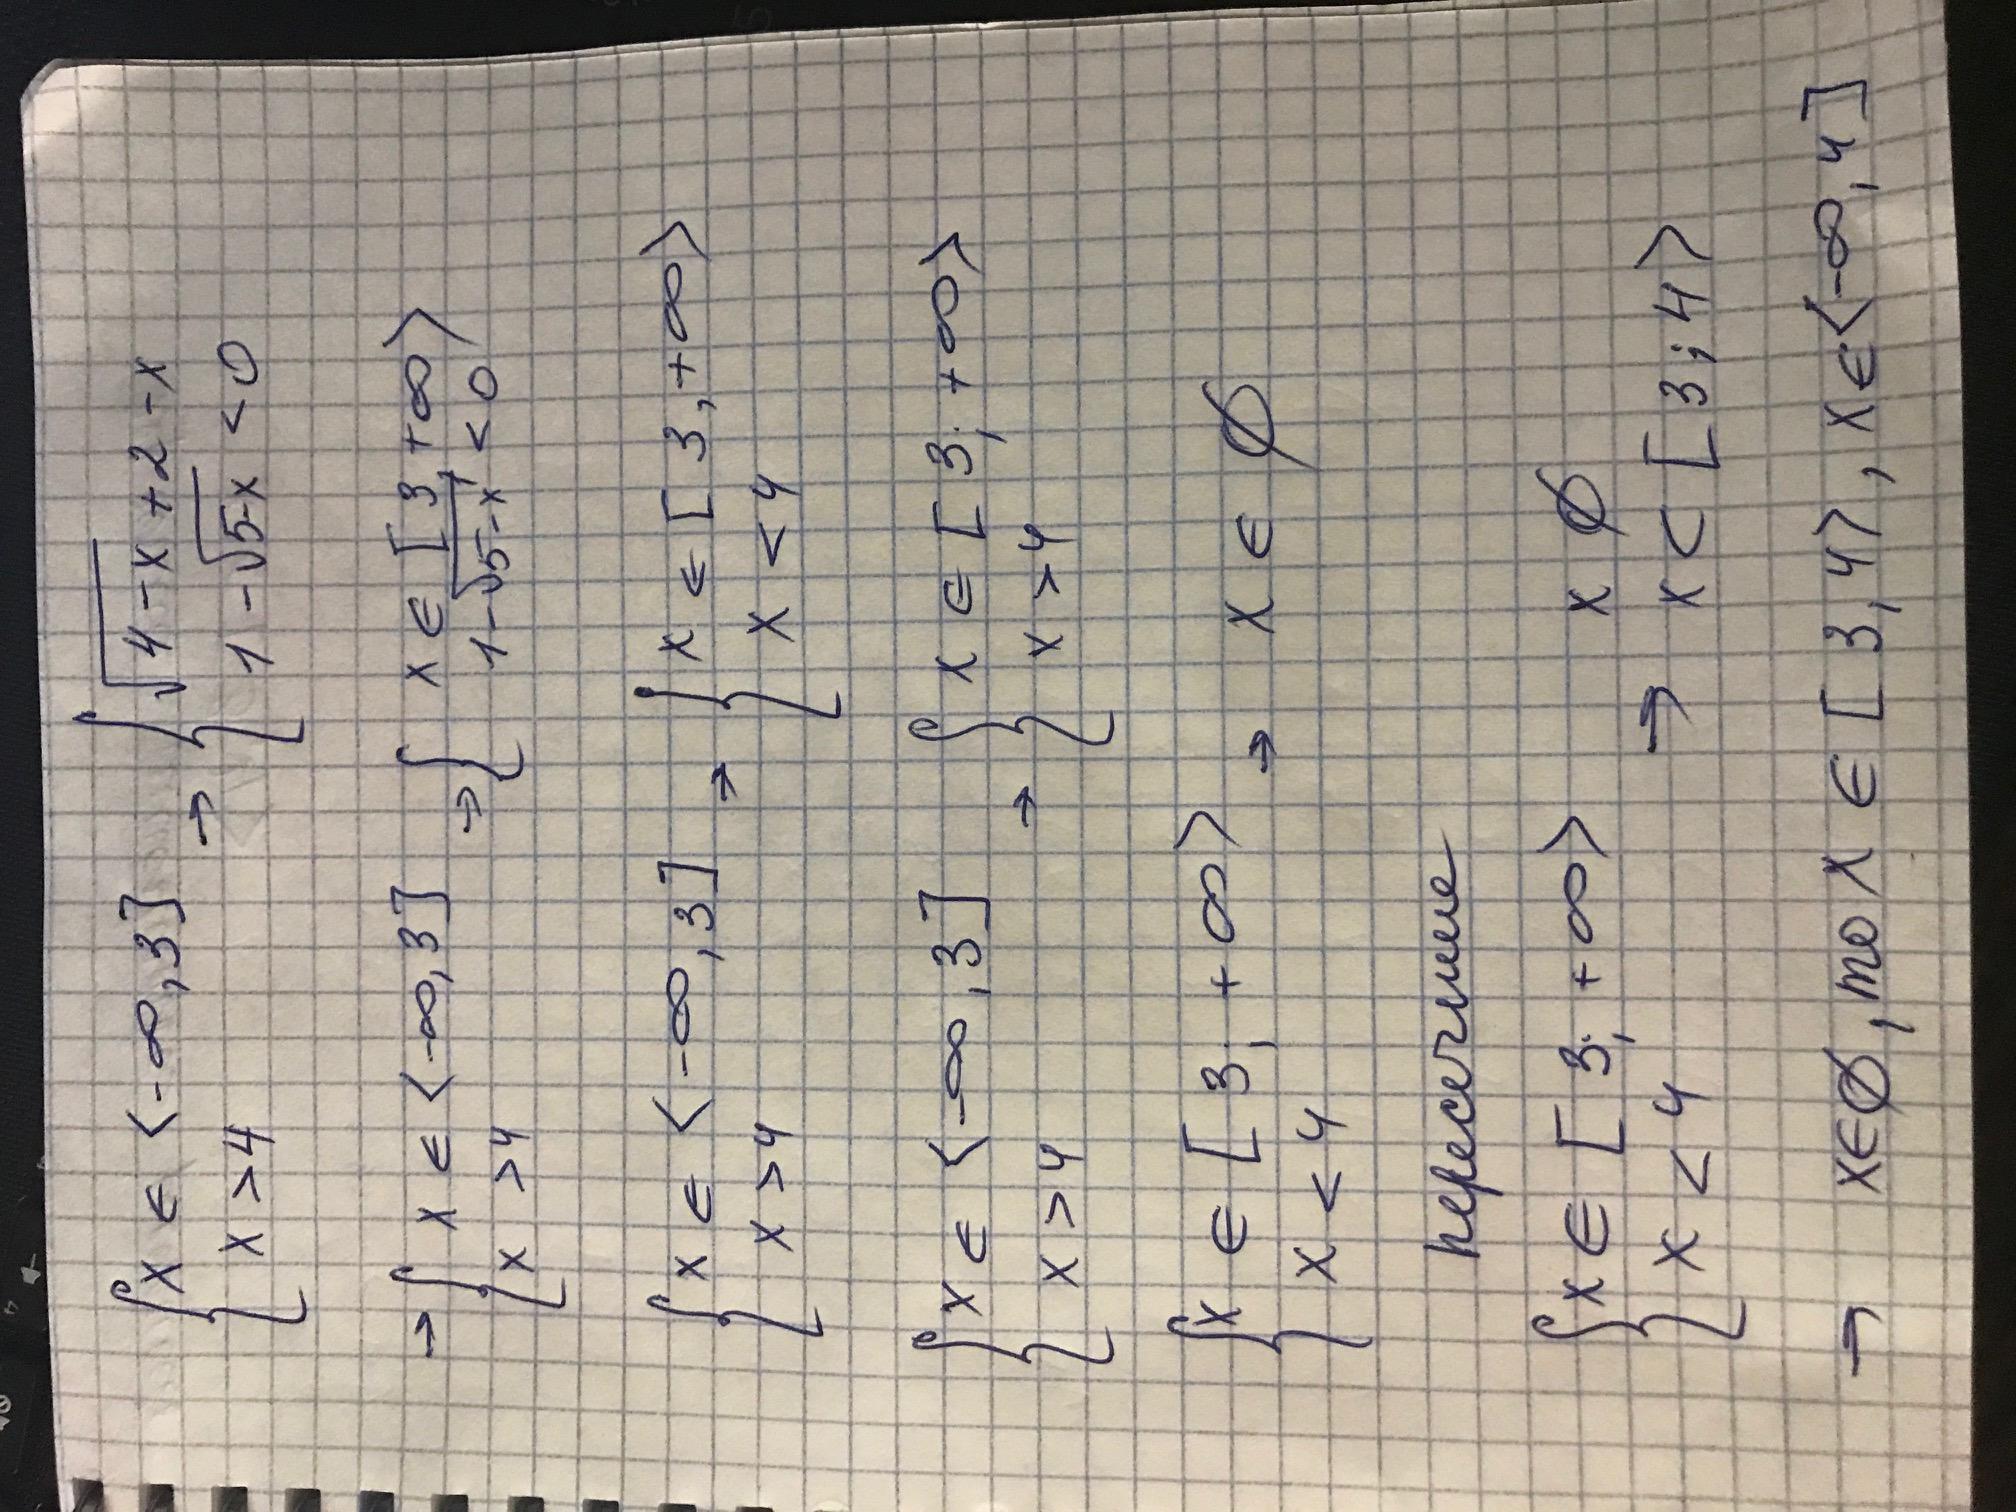 { x ∈ <-∞,3] → { √4-x+2-x
x>4 1-√5-x <0
→ { x ∈ <-∞,3] → { x ∈ [3,+∞>
x>4 1-√5-x <0
{ x ∈ <-∞,3] → { x ∈ [3,+∞>
x>4 x<4
{ x ∈ <-∞,3] → { x ∈ [3;+∞>
x>4 x>4
{ x ∈ [3;+∞> → x ∈ ∅
x<4
пересечение
{ x ∈ [3;+∞> x ∅
x<4 → x< [3;4>
→ x∈∅, то x ∈ [3,4>, x∈<-∞,4]